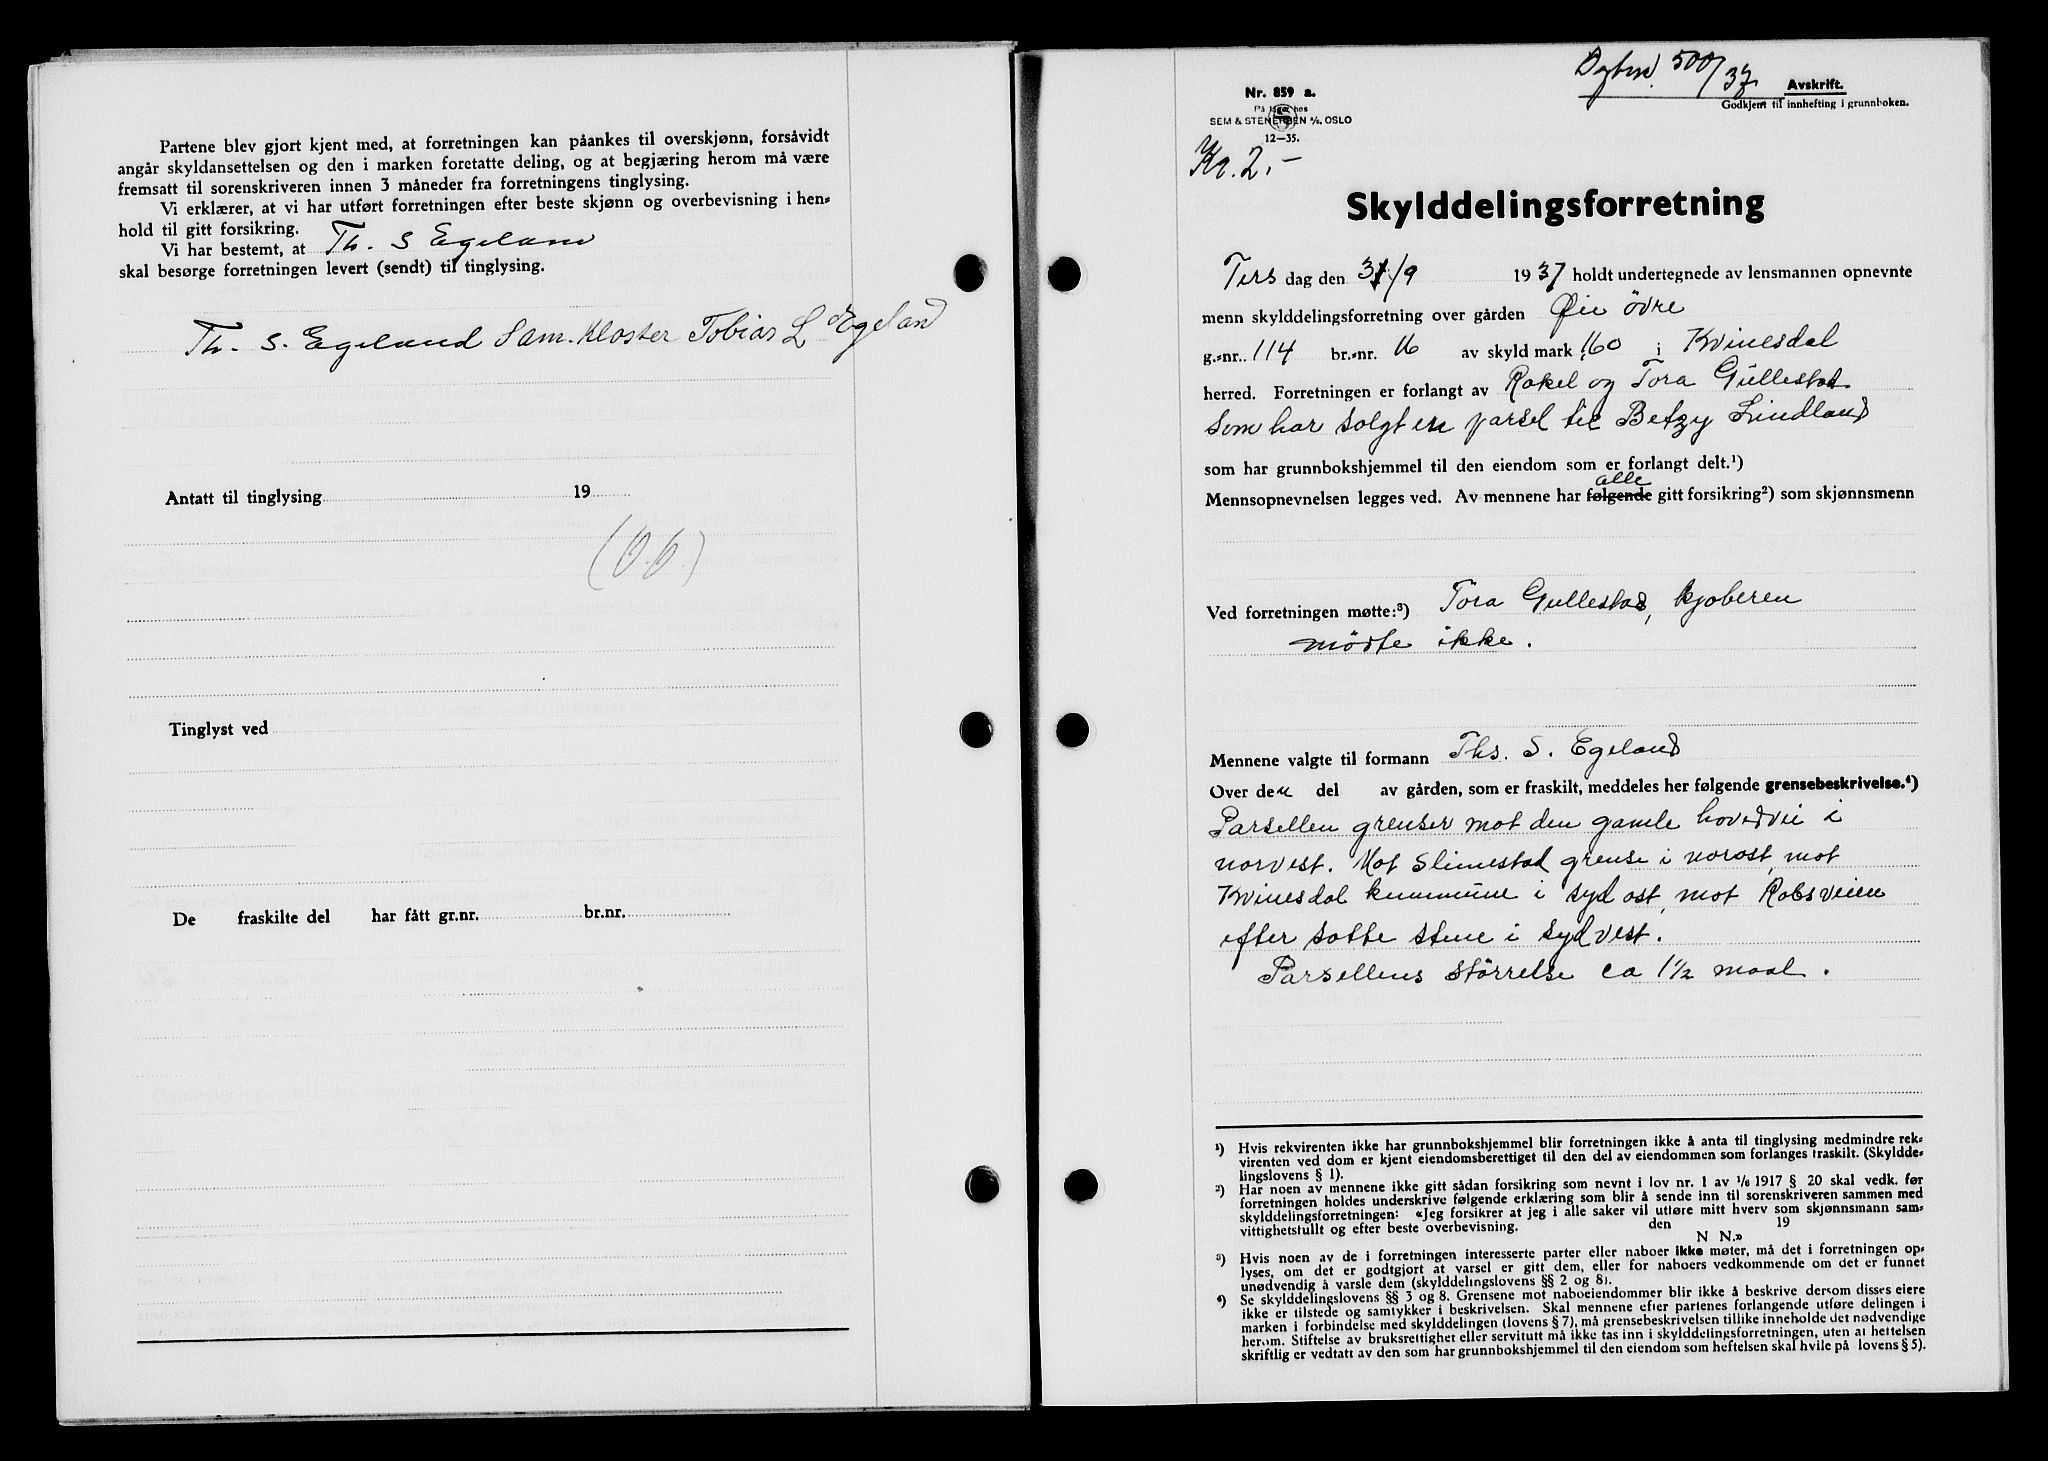 Partene blev gjort kjent med, at forretningen kan påankes til overskjønn, forsåvidt
angår skyldansettelsen og den i marken foretatte deling, og at begjæring herom må være
fremsatt til sorenskriveren innen 3 måneder fra forretningens tinglysing.
Vi erklærer, at vi har utført forretningen efter beste skjønn og overbevisning i hen-
hold til gitt forsikring.
Vi har bestemt, at Th. S Egeland
skal besørge forretningen levert (sendt) til tinglysing.
Th. S. Egeland Sam. Kloster Tobias L Egeland
Antatt til tinglysing 19
Tinglyst ved
De fraskilte del har fått gr.nr. br.nr.
Dgbnr. 500/37
Nr. 859 a.
På lager hos
SEM & STENERSEN A/S, OSLO
12—35.
Avskrift.
Godkjent til innhefting i grunnboken.
Kr. 2.-
Skylddelingsforretning
Tirs dag den /9 1937 holdt undertegnede av lensmannen opnevnte
menn skylddelingsforretning over gården Øie övre
g.-nr. 114 br.-nr. 16 av skyld mark 1,60 i Kvinesdal
herred. Forretningen er forlangt av Rakel og Tora Gullestad
som har solgt en parsel til Betzy Lindland
som har grunnbokshjemmel til den eiendom som er forlangt delt.¹)
alle
Mennsopnevnelsen legges ved. Av mennene har følgende gitt forsikring²) som skjønnsmenn
Ved forretningen møtte:³) Tora Gullestad, kjøberen
mödte ikke.
Mennene valgte til formann Ths. S. Egeland
Over den del av gården, som er fraskilt, meddeles her følgende grensebeskrivelse.⁴)
Parsellen grenser mot den gamle hovedvei i
norvest. Mot Slimestad grense i norost, mot
Kvinesdal kommune i syd ost, mot Robsveien
efter satte stene i sydvest.
Parsellens störrelse ca 1½ maal.
¹) Hvis rekvirenten ikke har grunnbokshjemmel blir forretningen ikke å anta til tinglysing medmindre rek-
virenten ved dom er kjent eiendomsberettiget til den del av eiendommen som forlanges fraskilt. (Skyldde-
lingslovens § 1).
²) Har noen av mennene ikke gitt sådan forsikring som nevnt i lov nr. 1 av 1/6 1917 § 20 skal vedk. før
forretningen holdes underskrive følgende erklæring som blir å sende inn til sorenskriveren sammen med
skylddelingsforretningen: «Jeg forsikrer at jeg i alle saker vil utføre mitt hverv som skjønnsmann sam-
vittighetsfullt og efter beste overbevisning. den 19
N N.»
³) Hvis noen av de i forretningen interesserte parter eller naboer ikke møter, må det i forretningen op-
lyses, om det er godtgjort at varsel er gitt dem, eller for naboers vedkommende om det er funnet
unødvendig å varsle dem (skylddelingslovens §§ 2 og 8).
⁴) Se skylddelingslovens §§ 3 og 8. Grensene mot naboeiendommer blir ikke å beskrive dersom disses eiere
ikke er tilstede og samtykker i beskrivelsen. Skal mennene efter partenes forlangende utføre delingen i
marken i forbindelse med skylddelingen (lovens § 7), må grensebeskrivelsen tillike inneholde det nødvendige
herom. Stiftelse av bruksrettighet eller servitutt må ikke tas inn i skylddelingsforretningen, uten at heftelsen
skriftlig er vedtatt av den som har grunnbokshjemmel til den eiendom som heftelsen skal hvile på lovens § 5).